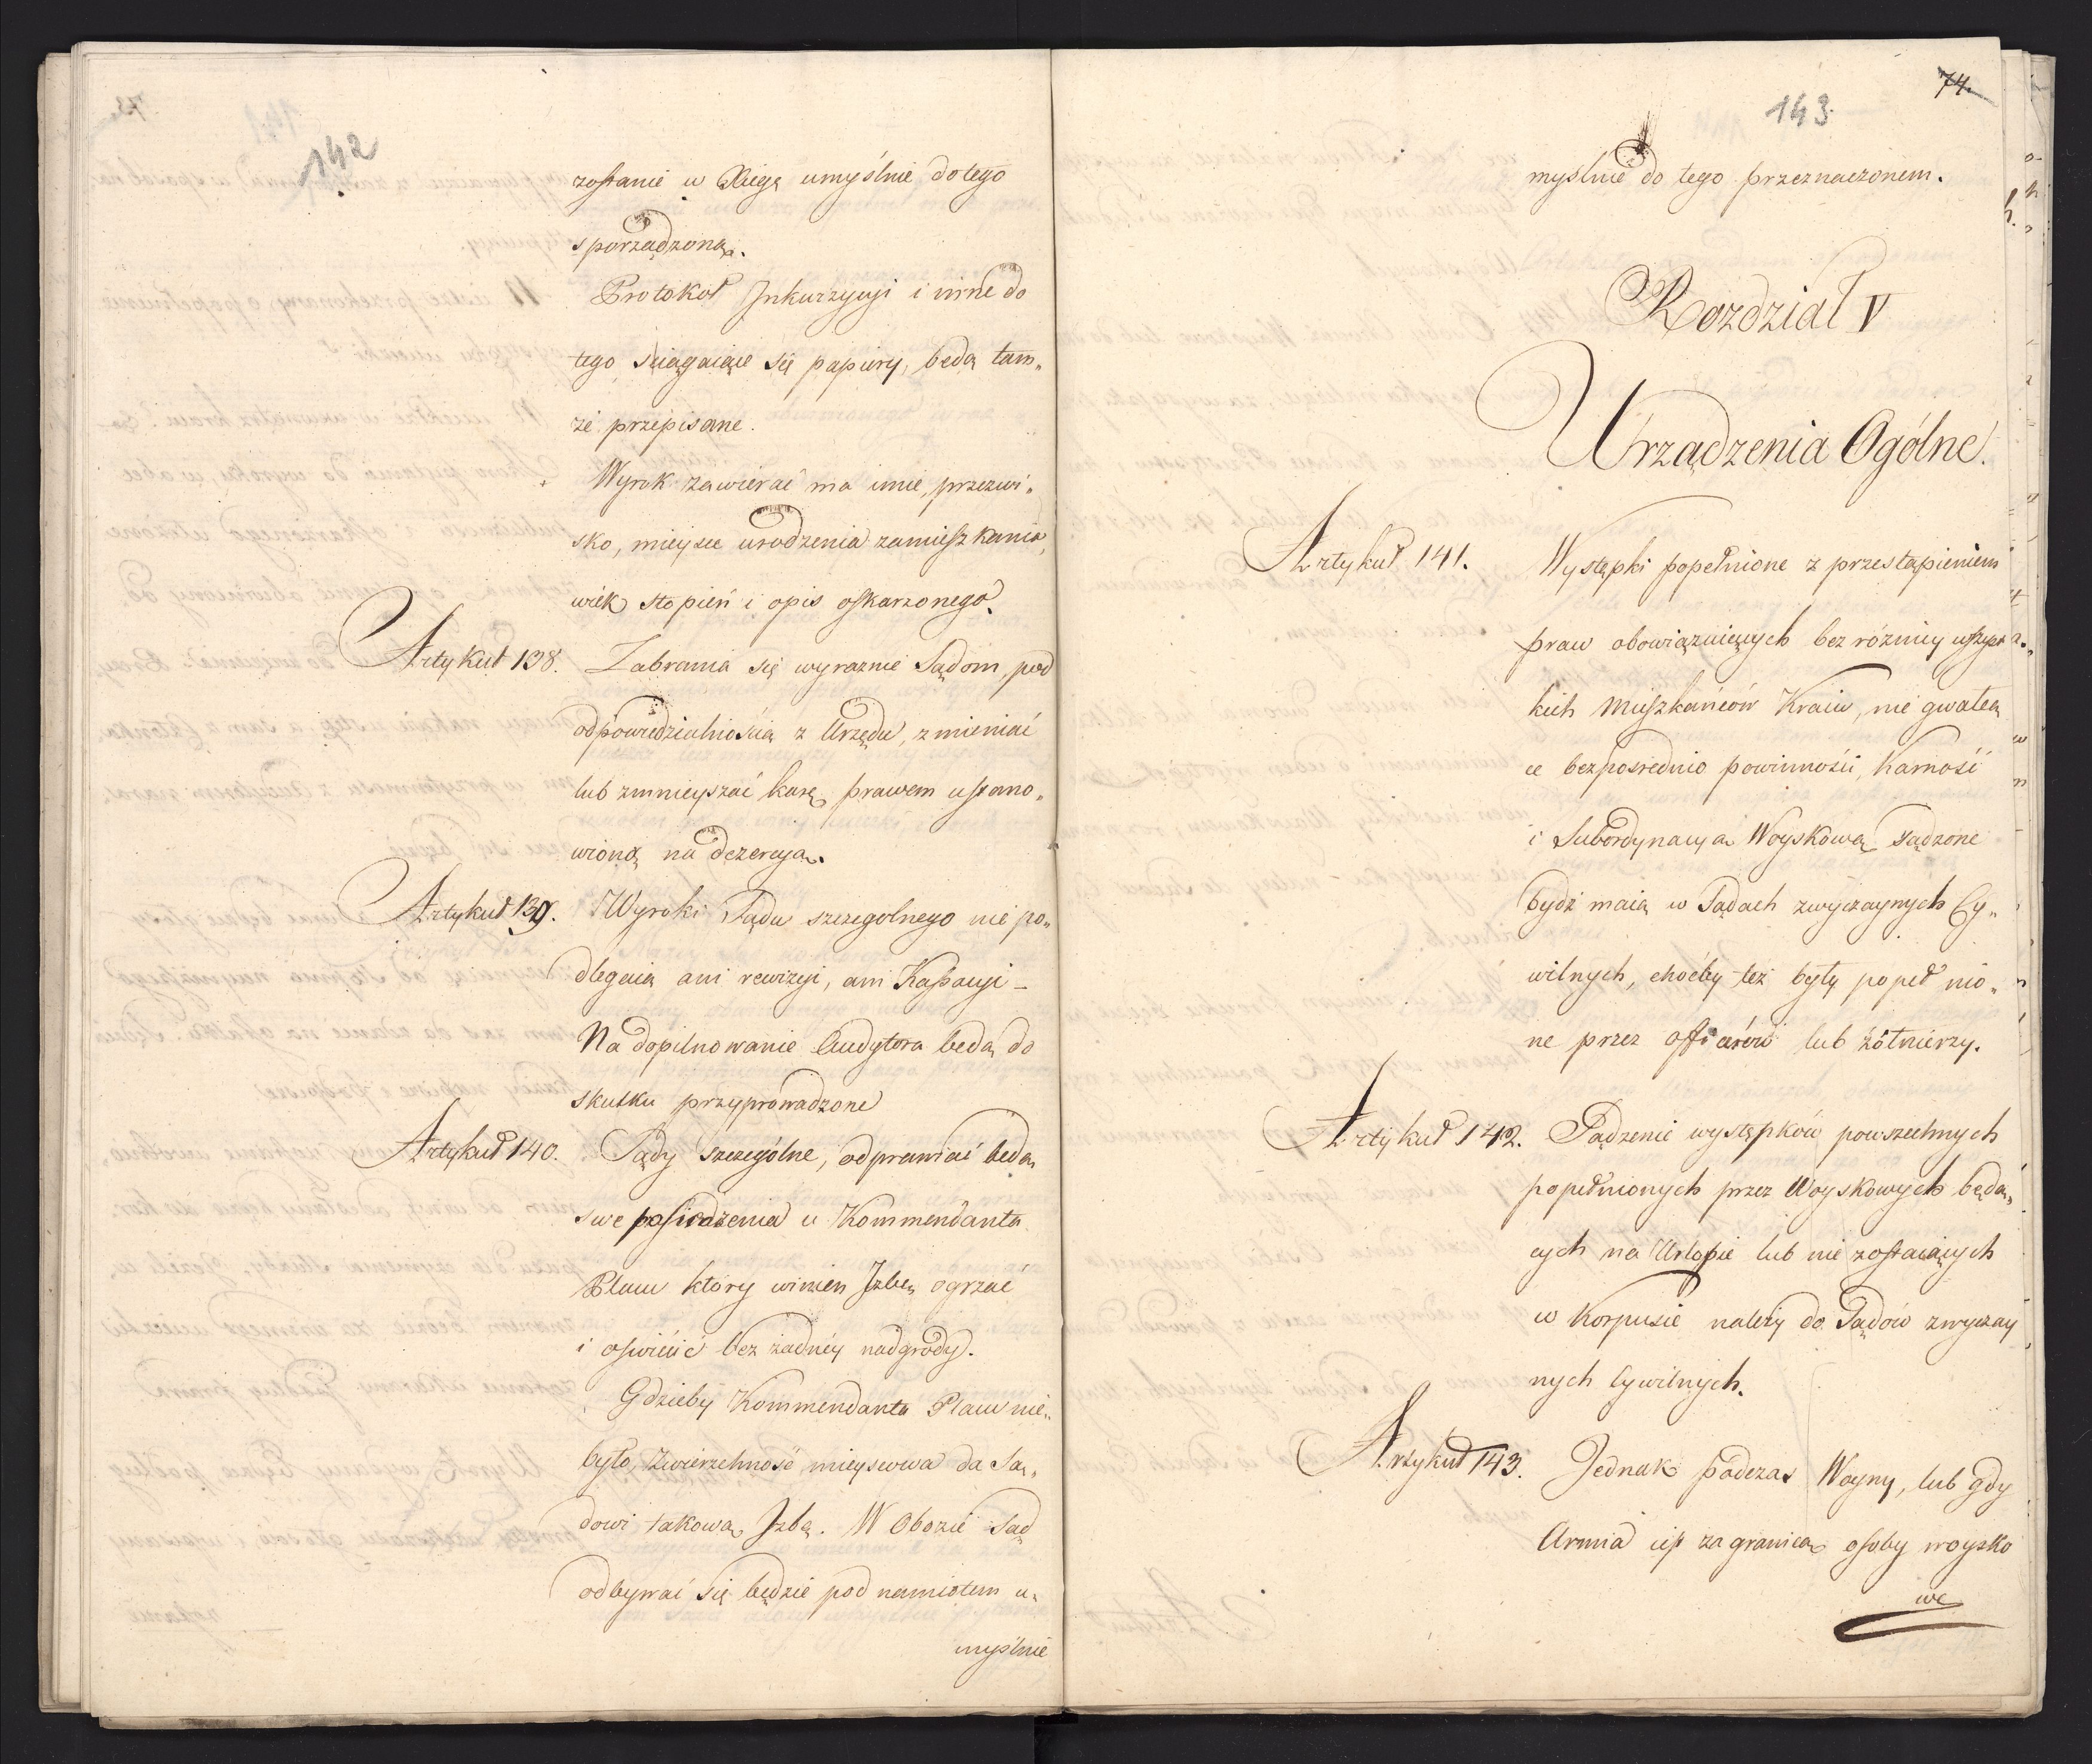 142
zostanie w Xięgę umyślnie do tego
sporządzoną.
Protokoł Jnkwizycyi i inne do
tego ściągaiące się papiery, będą tam„
że przepisane.
Wyrok zawierać ma imie, przezwi„
sko, mieysce urodzenia zamieszkania,
wiek stopień i opis oskarżonego.
Artykuł 138. Zabrania się wyraznie Sądom, pod
odpowiedzialnością z Urzędu, zmieniać
lub zmnieyszać karę prawem ustano„
wioną na dezercyą.
Artykuł 139. Wyroki Sądu szczegolnego nie po„
dlegaią ani rewizyi, ani Kassacyi –
Na dopilnowanie Audytora będą do
skutku przyprowadzone
Artykuł 140. Sądy szczególne, odprawiać będą
swe posiedzenia u Kommendanta
Placu który winien Jzbę ogrzać
i oświécić bez żadnéy nadgrody.
Gdzieby Kommendanta Placu nie„
było, Zwierzchność mieyscowa da Są„
dowi takową Jzbę. W Obozie Sąd
odbywać się będzie pod namiotem u„
myślnie
74.
143
myślnie do tego przeznaczonem.
Rozdział V
Urządzenia Ogólne.
Artykuł 141. Występki popełnione z przestąpieniem
praw obowiązuiących bez różnicy wszyst„
kich Mieszkańców Kraiu, nie gwałcą
ce bezposrednio powinności, Karność
i Subordynacyą Woyskową sądzone
bydź maią w Sądach zwyczaynych Cy„
wilnych, choćby też były popełnio„
ne przez officerów lub żółnierzy.
Artykuł 142. Sądzenie występków powszechnych
popełnionych przez Woyskowych będą„
cych na Urlopie lub nie zostaiących
w Korpusie należy do Sądów zwyczay
nych Cywilnych.
Artykuł 143. Jednak podczas Woyny, lub gdy
Armia iest za granicą osoby woysko
we